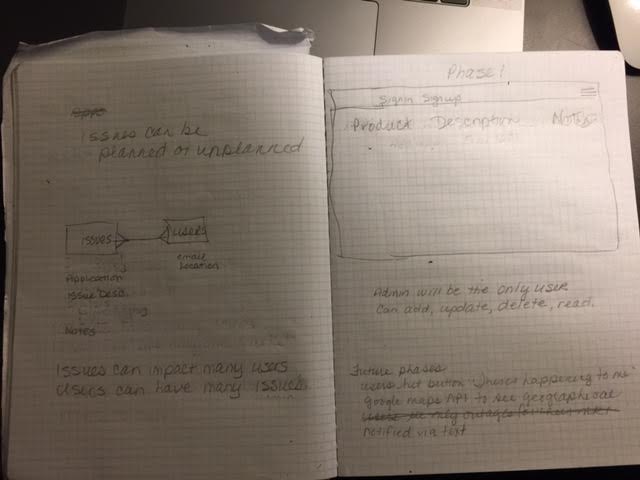 issues can be
planned or unplanned
issues
users
Application
Issue Desc.
Notes
email
Location
Issues can impact many users
Users can have many issues
Phase 1
Signin Signup
Product Description Notes
Admin will be the only user
can add, update, delete, read.
Future phases
users hit button "heres happening to me"
google maps API to see geographical
notified via text